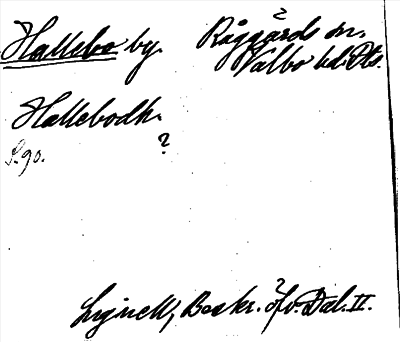 Hallebo by. Råggärds sn.
Valbo hd. Dls.
Hallebodh.
S. 90. ?
Lignell, Beskr. öfv. Dal. II.